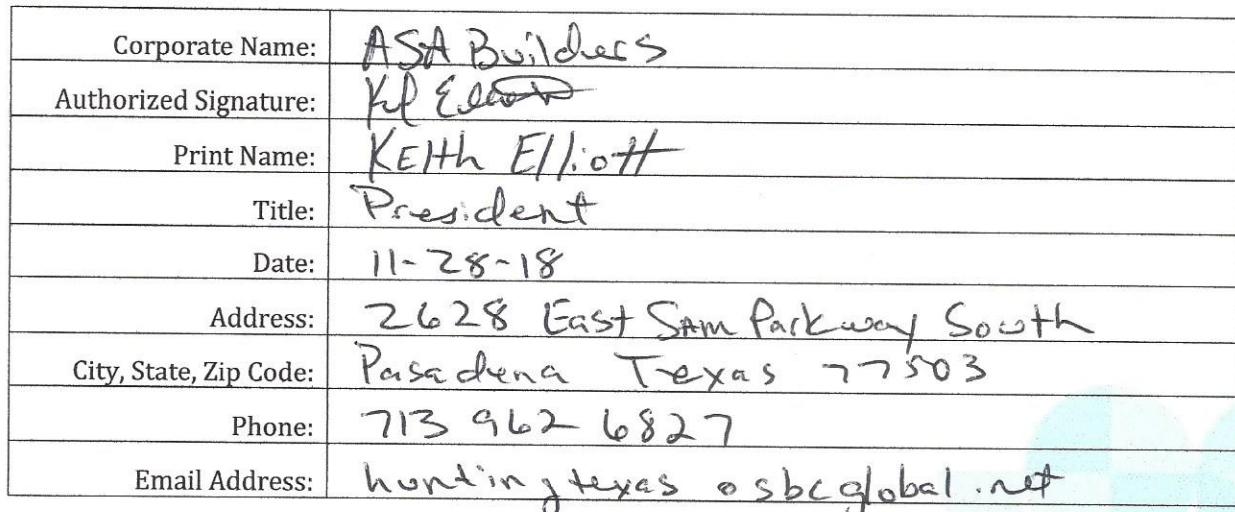 Corporate Name: ASA Builders
Authorized Signature:
Print Name: KEIth Elliott
Title: President
Date: 11-28-18
Address: 2628 East SAm Parkway South
City, State, Zip Code: Pasadena Texas 77503
Phone: 713 962 6827
Email Address: huntingtexas @ sbcglobal.net